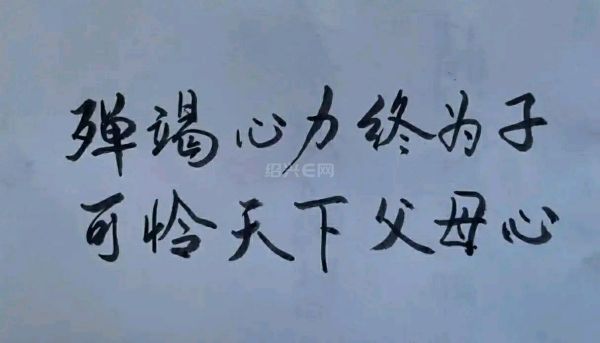 殚竭心力终为子
绍兴E网
可怜天下父母心